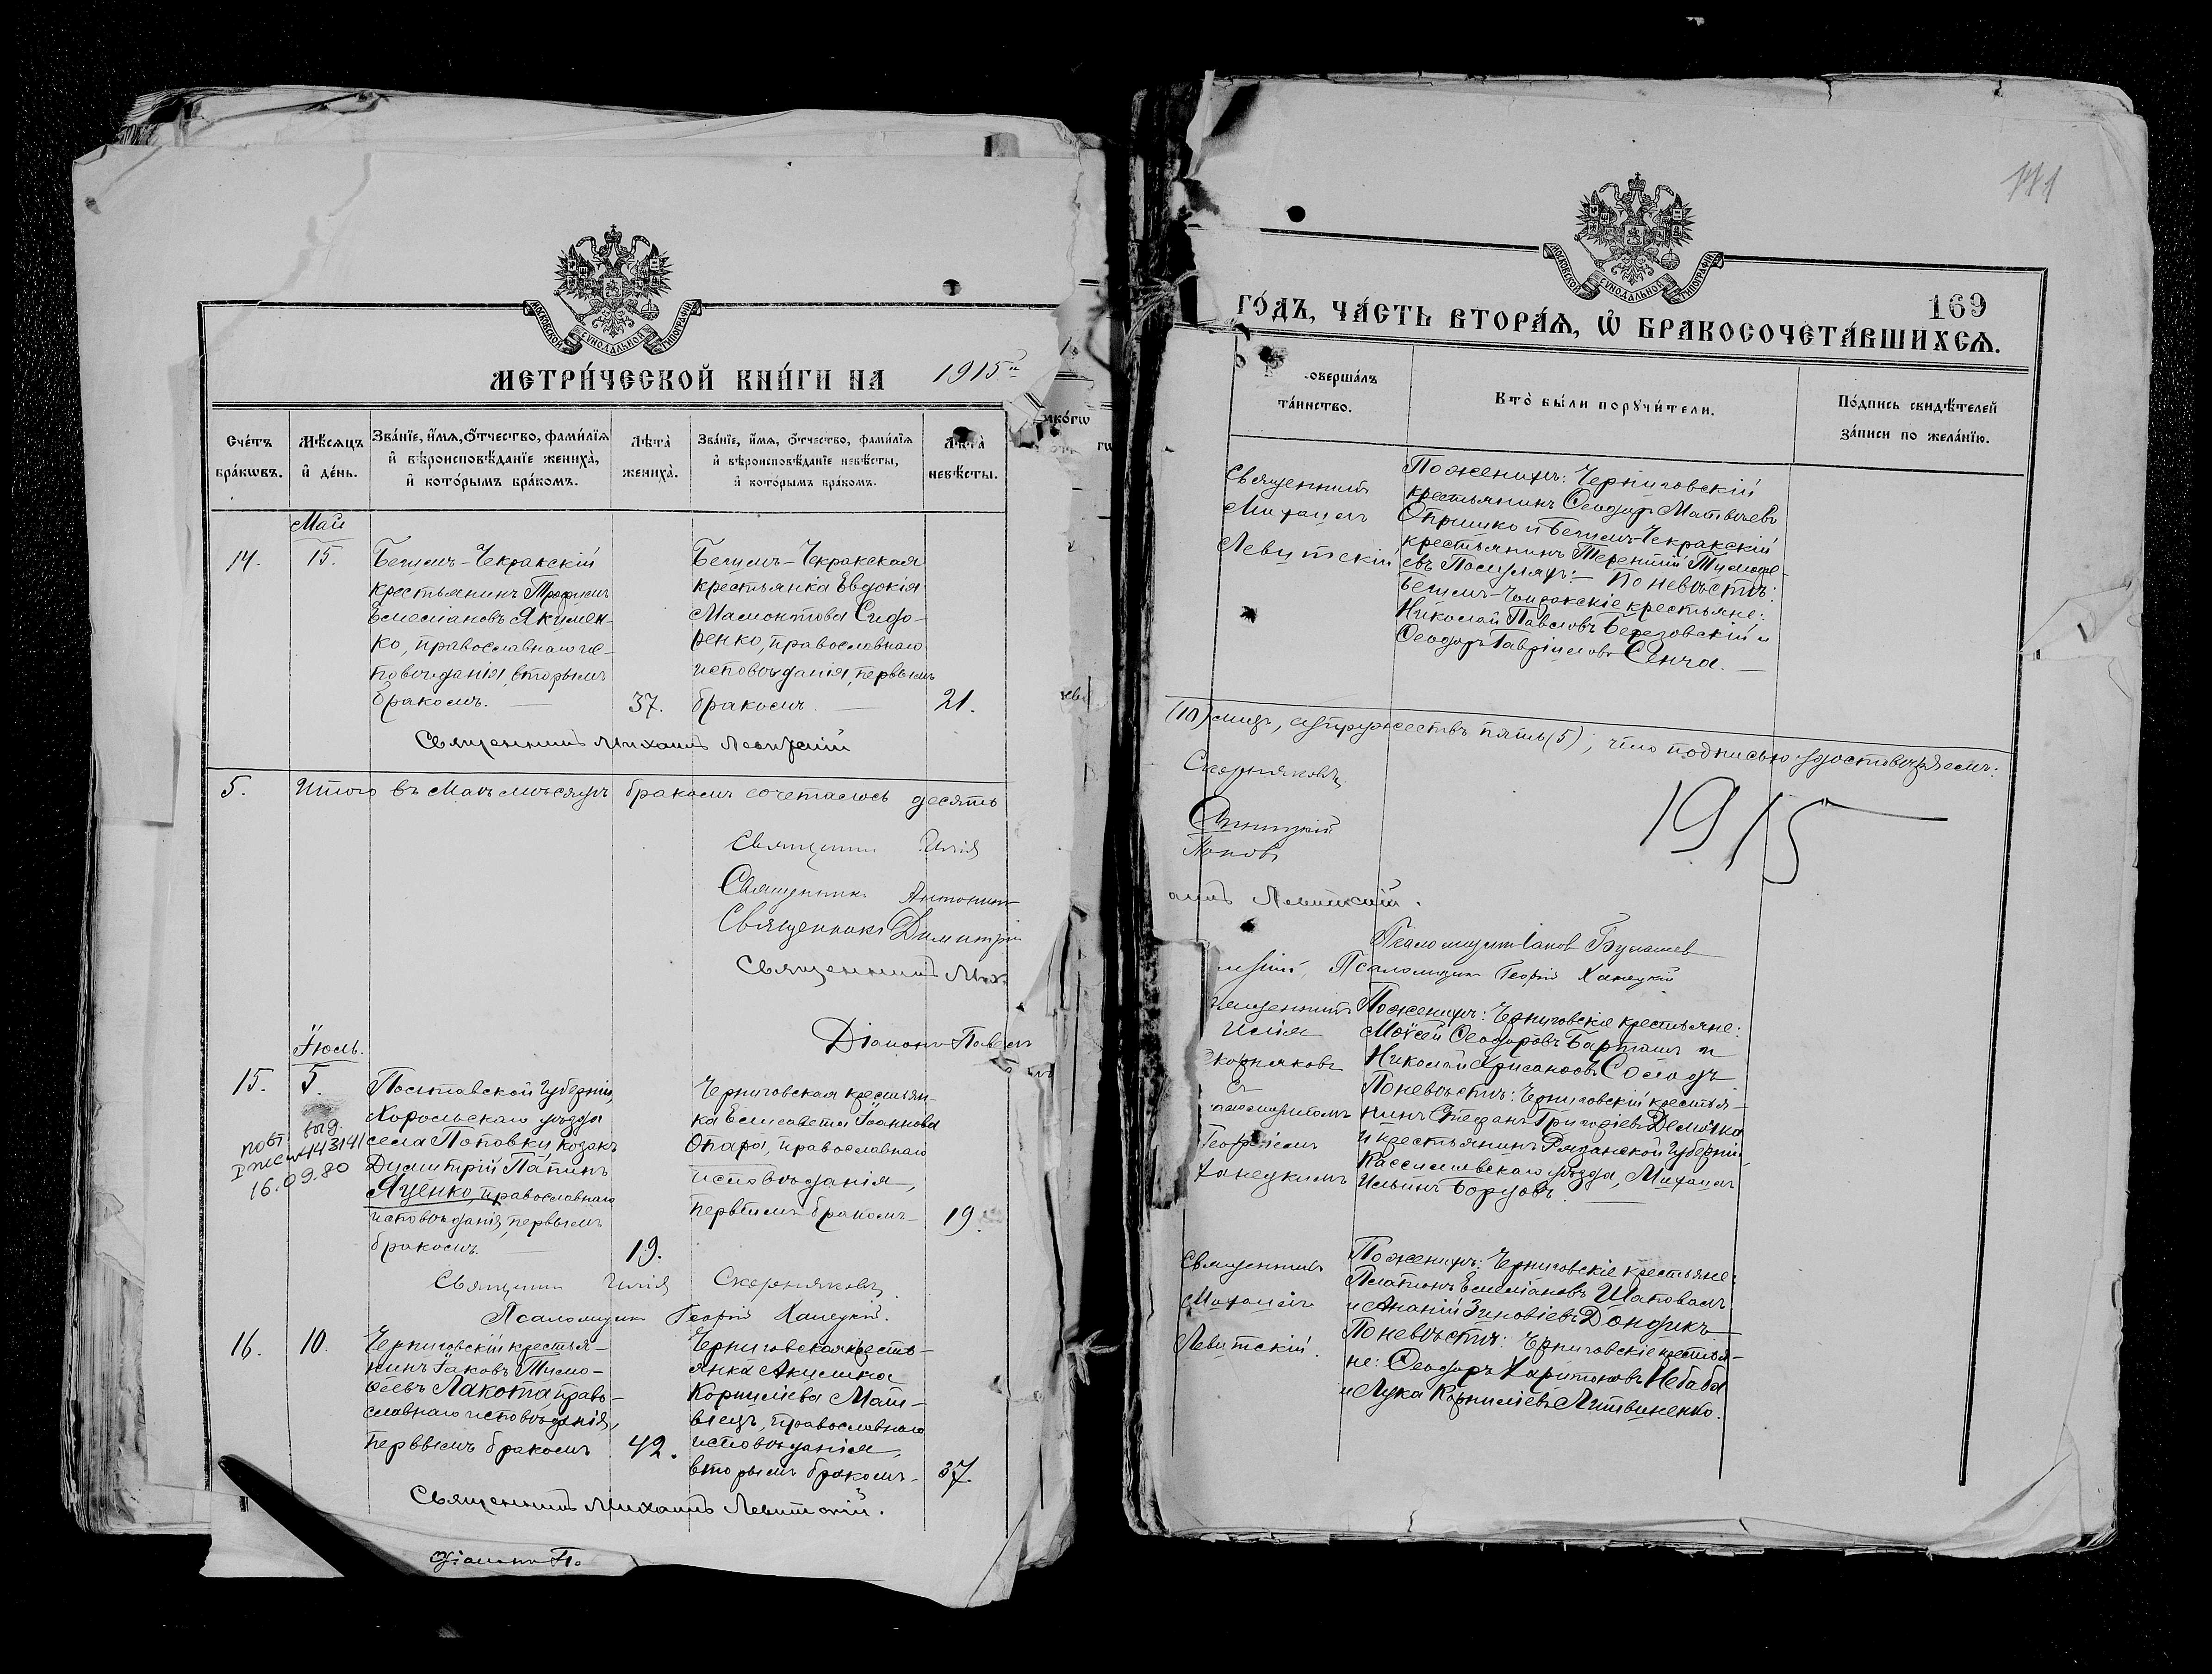 МОСКОВСКОЙ СѴНОДАЛЬНОЙ ТИПОГРАФІИ
МЕТРИ́ЧЕСКОЙ КНИ́ГИ НА 1915й
Сче́тъ бра́кωвъ.
Мѣ́сяцъ и҆ де́нь.
Зва́нїе, и҆́мѧ, ѻ҆́тчество, фами́лїѧ и҆ вѣроисповѣ́данїе жениха̀, и҆ кото́рымъ бра́комъ.
Лѣ́та жениха̀.
Зва́нїе, и҆́мѧ, ѻ҆́тчество, фами́лїѧ и҆ вѣроисповѣ́данїе невѣ́сты, и҆ кото́рымъ бра́комъ.
Лѣ́та невѣ́сты.
Май
14.
15.
Бегимъ-Чекракскій
крестьянинъ Трофимъ
Емеліановъ Якимен-
ко, православнаго ис-
повѣданія, вторымъ
бракомъ.
37.
Бегимъ-Чекракская
крестьянка Евдокія
Мамонтова Сидо-
ренко, православнаго
исповѣданія, первымъ
бракомъ.
21.
Священникъ Михаилъ Левитскій
5. Итого въ Маѣ мѣсяцѣ бракомъ сочеталось десять
Священникъ Илія
Священникъ Антоній
Священникъ Димитрій
Священникъ Мих
Діаконъ Павелъ
Іюль.
15.
5.
повт. выд.
443141
16.09.80
Полтавской губерніи,
Хорольскаго уѣзда
села Поповки, козакъ
Димитрій
Яценко, православнаго
исповѣданія, первымъ
бракомъ.
19.
Черниговская крестьян-
ка Елисавета Іоаннова
Опара, православнаго
исповѣданія,
первымъ бракомъ
19.
Священникъ Илія Скорняковъ
Псаломщикъ Георгій Ханецкій.
16.
10.
Черниговскій крестья-
нинъ Іаковъ Тимо-
ѳеевъ Лакота, право-
славнаго исповѣданія,
первымъ бракомъ
42.
Черниговская кресть-
янка Акулина
Корниліева Мат-
віецъ, православнаго
исповѣданія,
вторымъ бракомъ
37.
Священникъ Михаилъ Левитскій.
Діаконъ П.
141
МОСКОВСКОЙ СѴНОДАЛЬНОЙ ТИПОГРАФІИ
169
ГО́ДЪ, ЧА́СТЬ ВТОРА́Ѧ, Ѡ҆ БРАКОСОЧЕТА́ВШИХСѦ.
оверша́лъ та́инство.
Кто̀ бы́ли порꙋчи́тели.
По́дпись свидѣ́телей за́писи по жела́нїю.
Священникъ
Михаилъ
Левитскій
По женихѣ: Черниговскій
крестьянинъ Ѳеодоръ Матвѣевъ
Опришко и Бегимъ-Чекракскій
крестьянинъ Терентій Тимоѳе-
евъ По невѣстѣ:
Бегимъ-Чокракскіе крестьяне:
Николай Павловъ Березовскій и
Ѳеодоръ Гавріиловъ Сѣнча.
(10) лицъ, супружествъ пять (5), что подписью удостовѣряемъ:
Скорняковъ.
Синицкій
Поповъ
1915
аилъ Левитскій.
Псаломщикъ Іаковъ
Псаломщикъ Георгій Ханецкій
вященникъ
Илія
Скорняковъ
съ
псаломщикомъ
Георгіемъ
Ханецкимъ
По женихѣ: Черниговскіе крестьяне:
Моѵсей Ѳеодоровъ Барташъ и
Николай Хрисанѳовъ Солодъ
По невѣстѣ: Черниговскій крестья-
нинъ Стефанъ Григоріевъ
и крестьянинъ Рязанской губерніи,
Кассимовскаго уѣзда, Михаилъ
Ильинъ Борзовъ
Священникъ
Михаилъ
Левитскій.
По женихѣ: Черниговскіе крестьяне:
Платонъ Емеліановъ Шаповалъ
и Ананій Зиновіевъ Дондикъ
По невѣстѣ: Черниговскіе крестья-
не: Ѳеодоръ Харитоновъ Небаба
и Лука Корниліевъ Литвиненко.